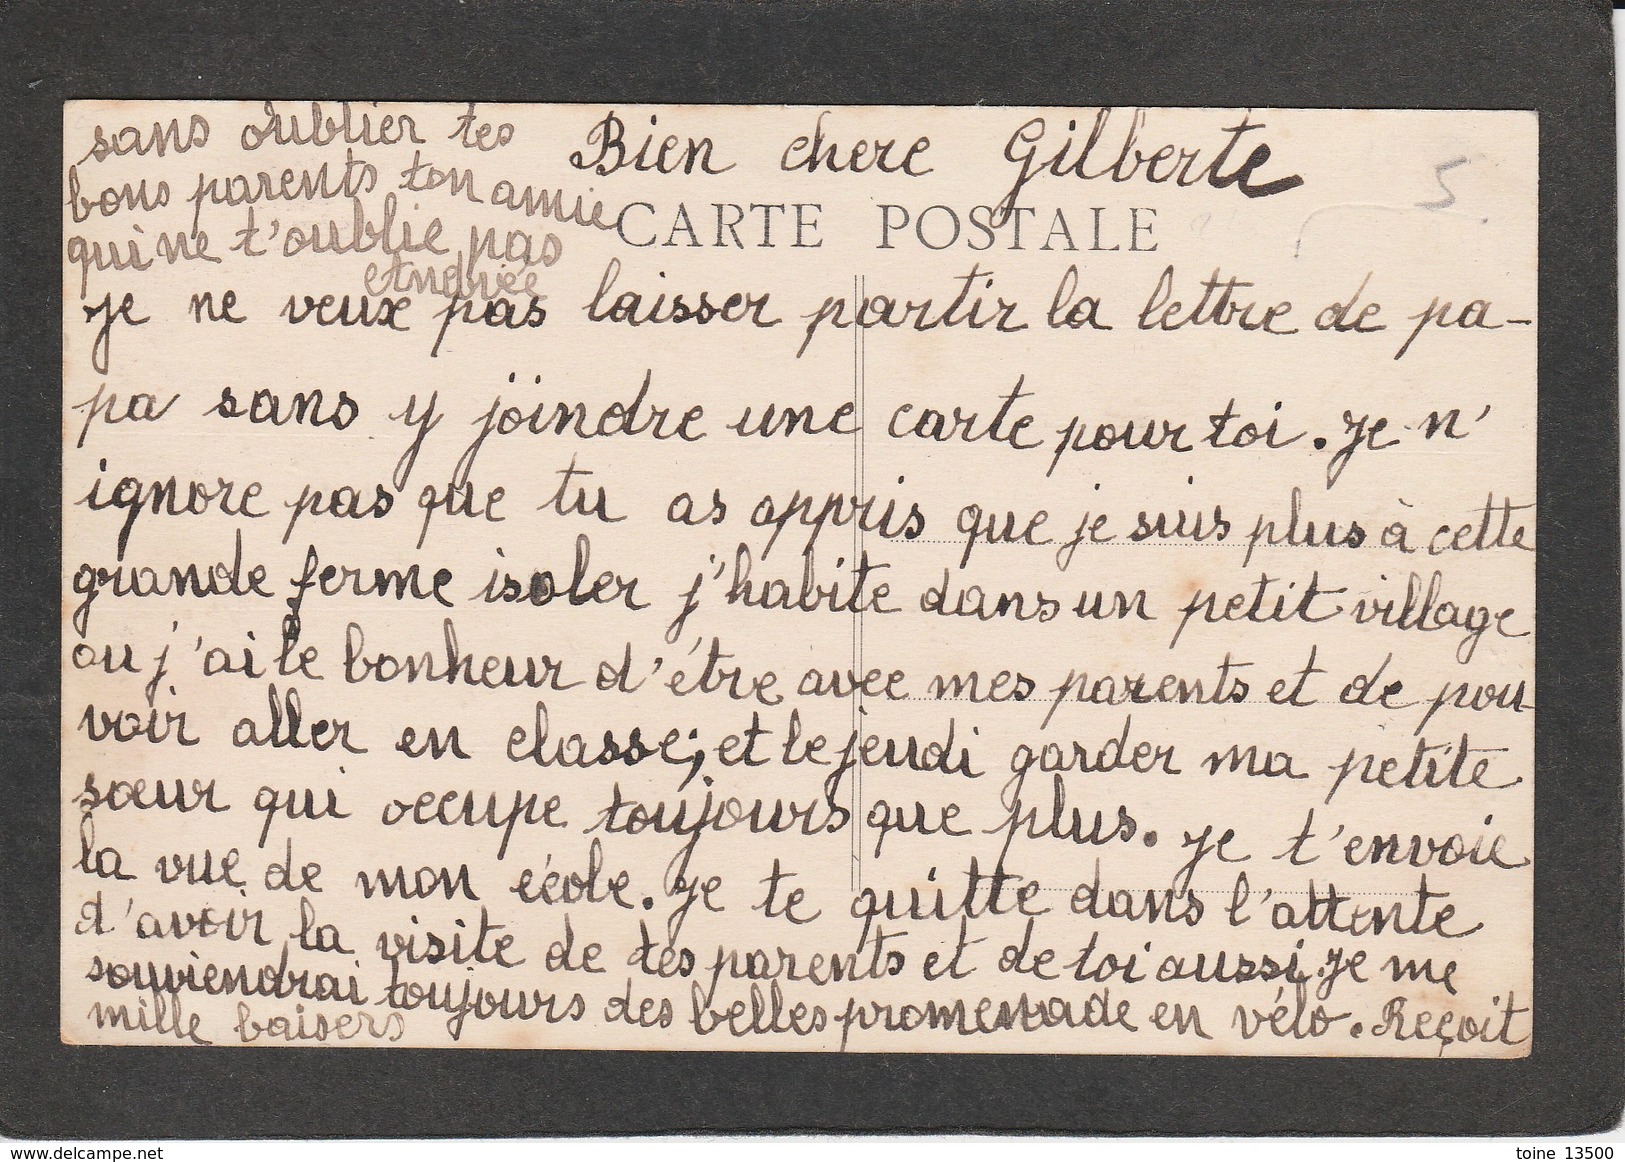 Bien chere Gilberte
CARTE POSTALE
5.
je ne veux pas laisser partir la lettre de pa-
pa sans y joindre une carte pour toi. je n'
ignore pas que tu as appris que je suis plus à cette
grande ferme isoler j'habite dans un petit village
ou j'ai le bonheur d'être avec mes parents et de pou-
voir aller en classe; et le jeudi garder ma petite
sœur qui occupe toujours que plus. je t'envoie
la vue de mon école. je te quitte dans l'attente
d'avoir la visite de tes parents et de toi aussi. je me
souviendrai toujours des belles promenade en vélo. Reçoit
mille baisers
sans oublier tes
bons parents ton amie
qui ne t'oublie pas
Andrée
delcampe.net
toine 13500